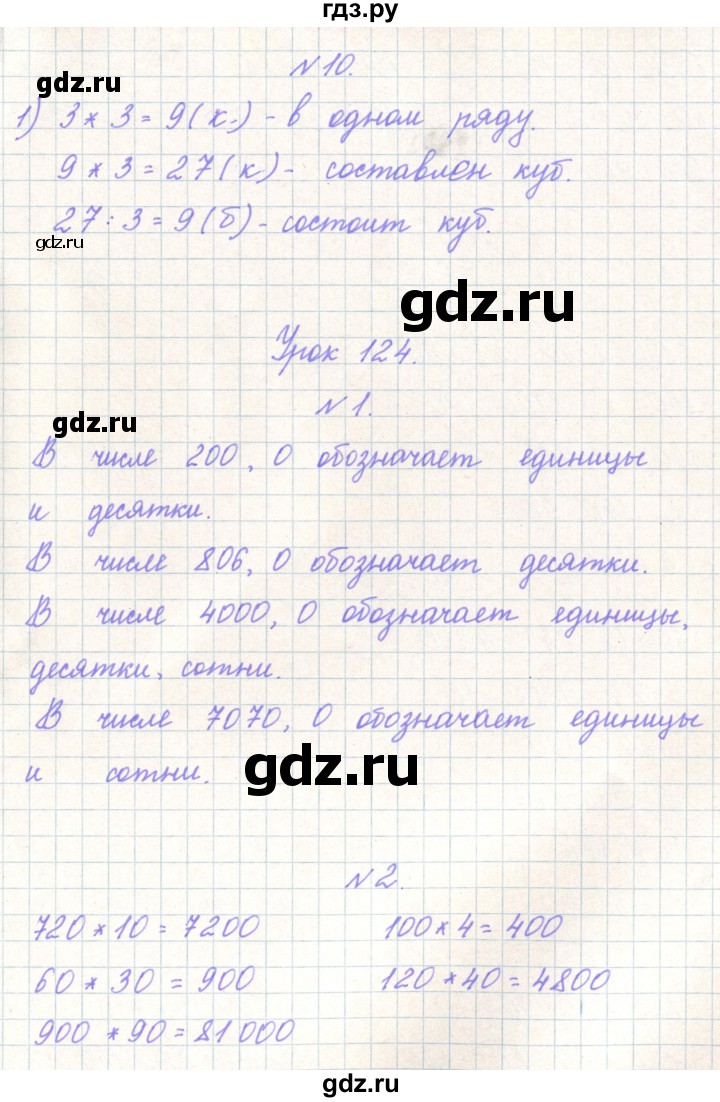 гдз.ру
№10.
gdz.ru
1) 3 * 3 = 9 (к.) - в одном ряду.
9 * 3 = 27 (к) - составлен куб.
27 : 3 = 9 (б) - состоит куб.
gdz.ru
gdz.ru
Урок 124.
№1.
gdz.ru
В числе 200, 0 обозначает единицы
и десятки.
В числе 806, 0 обозначает десятки.
В числе 4000, 0 обозначает единицы,
десятки, сотни.
В числе 7070, 0 обозначает единицы
и сотни.
gdz.ru
№2.
720 * 10 = 7200 100 * 4 = 400
60 * 30 = 900 120 * 40 = 4800
900 * 90 = 81000
gdz.ru